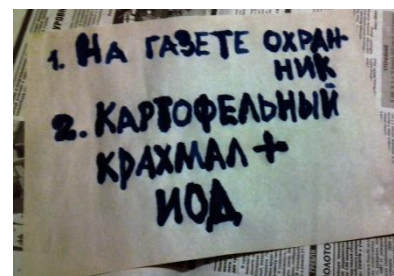 1. НА ГАЗЕТЕ ОХРАН-
НИК
2. КАРТОФЕЛЬНЫЙ
КРАХМАЛ +
ИОД